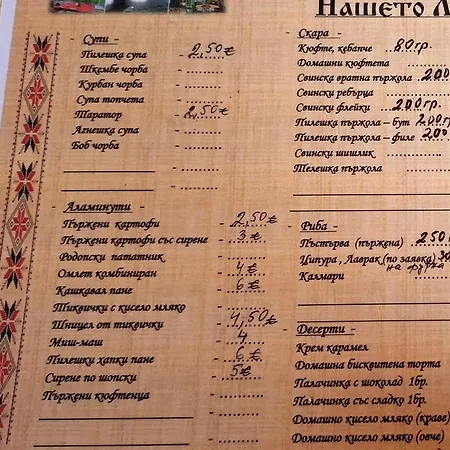 Нашето
- Супи -
Пилешка супа - 2,50 €
Шкембе чорба -
Курбан чорба -
Супа топчета -
Таратор - 2,50 €
Агнешка супа -
Боб чорба -
- Аламинути -
Пържени картофи - 2,50 €
Пържени картофи със сирене - 3 €
Родопски пататник -
Омлет комбиниран - 4 €
Кашкавал пане - 6 €
Тиквички с кисело мляко -
Шницел от тиквички - 4,50 €
Миш-маш - 4
Пилешки хапки пане - 6 €
Сирене по шопски - 5 €
Пържени кюфтенца -
- Скара -
Кюфте, кебапче 80гр.
Домашни кюфтета
Свинска вратна пържола 200
Свински ребърца
Свински флейки 200гр.
Пилешка пържола – бут 200гр
Пилешка пържола – филе 200
Свински шишлик
Телешка пържола
- Риба -
Пъстърва (пържена) 250
Ципура, Лаврак (по заявка)
Калмари
- Десерти -
Крем карамел
Домашна бисквитена торта
Палачинка с шоколад 1бр.
Палачинка със сладко 1бр.
Домашно кисело мляко (краве)
Домашно кисело мляко (овче)